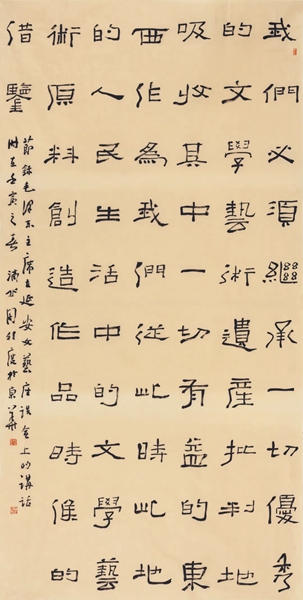 我們必須繼承一切優秀
的文學藝術遺產批判地
吸收其中一切有益的東
西作為我們從此時此地
的人民生活中的文學藝
術原料創造作品時候的
借鑒
節錄毛澤東主席在延安文藝座談會上的講話
時在壬寅之春